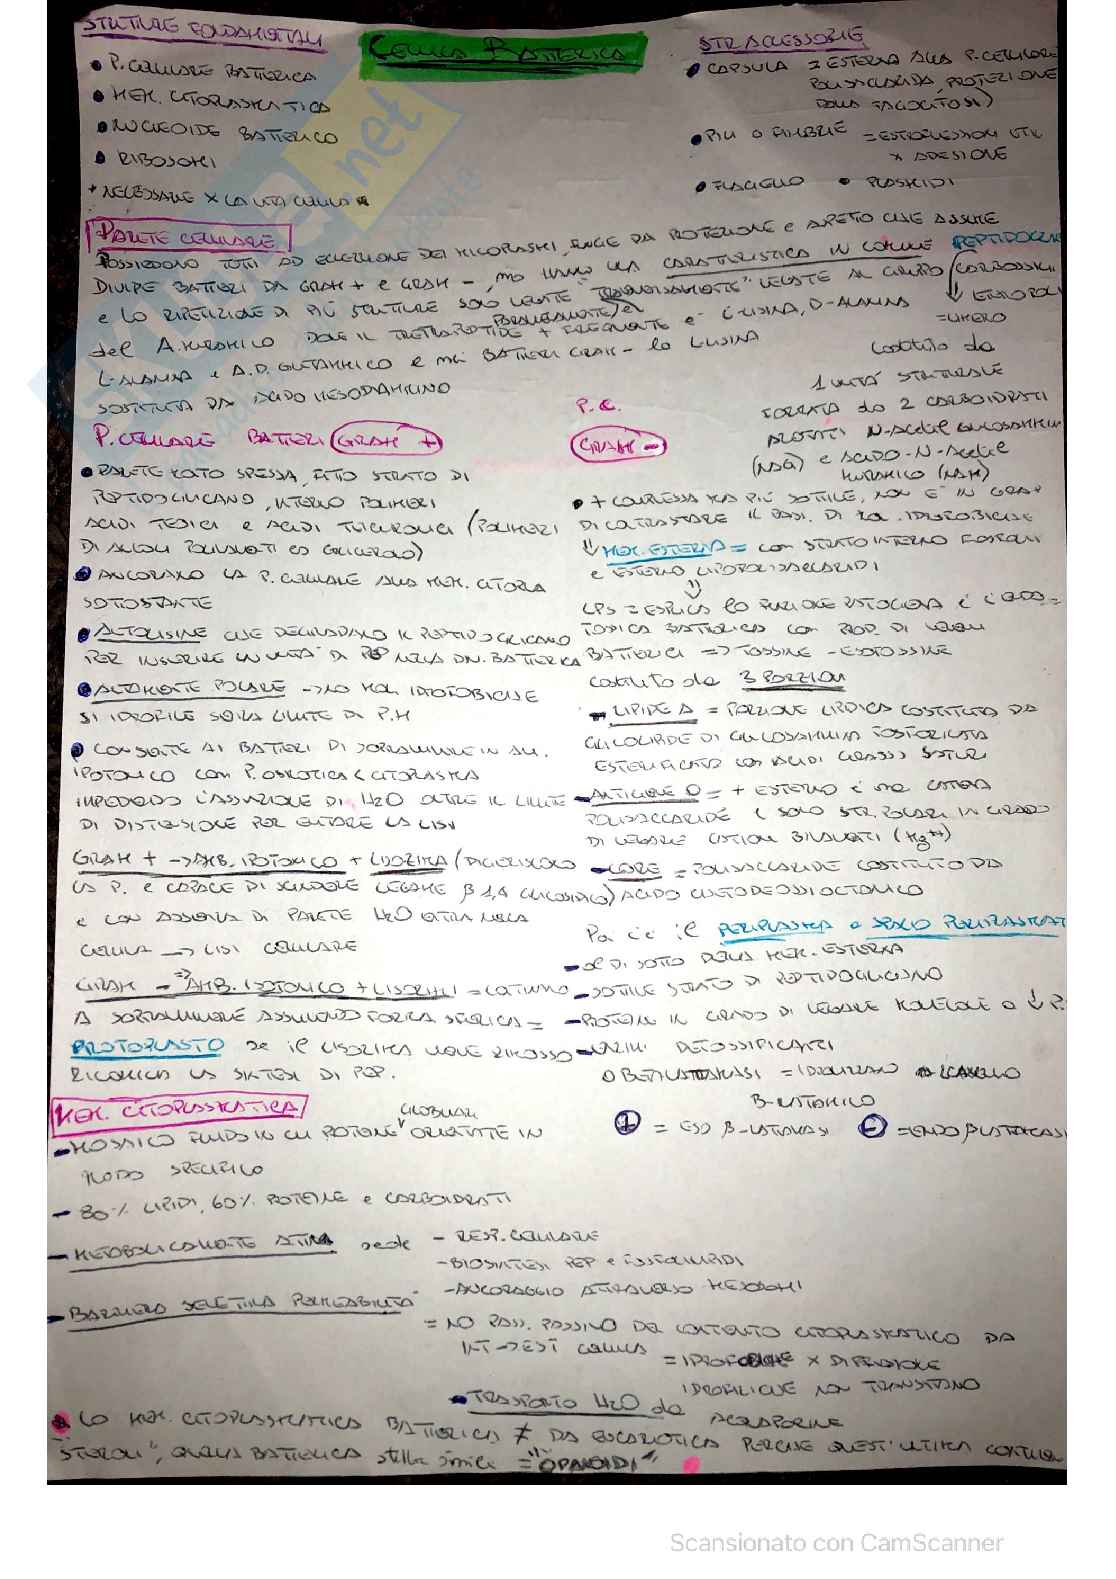 STRUTTURE FONDAMENTALI
CELLULA BATTERICA
STR ACCESSORIE
• P. CELLULARE BATTERICA
• MEM. CITOPLASMATICA
• NUCLEOIDE BATTERICO
• RIBOSOMI
* NECESSARIE X LA VITA CELLULA
• CAPSULA = ESTERNA ALLA P. CELLULARE
POLISACCARIDA, PROTEZIONE
DALLA FAGOCITOSI)
• PILI O FIMBRIE = ESTROFLESSIONI UTILI
X ADESIONE
• FLAGELLO • PLASMIDI
PARETE CELLULARE
POSSIEDONO TUTTI AD ECCEZIONE DEI MICOPLASMI, FUNGE DA PROTEZIONE e ASPETTO CHE ASSUME
DIVIDE BATTERI DA GRAM + e GRAM -, ma HANNO UNA CARATTERISTICA IN COMUNE PEPTIDOGLICA
e LA RIPETIZIONE DI PIÙ STRUTTURE SOLO LEGATE "TRASVERSALMENTE" LEGATE AL GRUPPO CARBOSSILI
PARALLELAMENTE) e
del A. MURAMICO DOVE IL TETRAPEPTIDE + FREQUENTE e L-LISINA, D-ALANINA
L-ALANINA e A.D. GLUTAMMICO e nei BATTERI GRAM - la LISINA
SOSTITUITA DA ACIDO MESODIAMINO
↓ ETEROPOLI
=LIMERO
Costituito da
1 UNITÀ STRUTTURALE
FORMATA da 2 CARBOIDRATI
N-Acetil GLUCOSAMMIN
(NAG) e ACIDO-N-Acetil
MURAMICO (NAM)
P. CELLULARE BATTERI GRAM +
• PARETE MOLTO SPESSA, FITTO STRATO DI
PEPTIDOGLICANO, INTERNO POLIMERI
ACIDI TEOICI e ACIDI TEICURONICI (POLIMERI
DI ALCOLI POLIVALENTI ES GLICEROLO)
• ANCORANO LA P. CELLULARE ALLA MEM. CITOPLA
SOTTOSTANTE
• AUTOLISINE CHE DEGRADANO IL PEPTIDOGLICANO
PER INSERIRE UN'UNITÀ DI PEP NELLA DIV. BATTERICA
• ALTAMENTE POLARE → NO MOL IDROFOBICHE
SI IDROFILE SENZA LIMITE DI P.M
• CONSENTE AI BATTERI DI SOPRAVVIVERE IN AM.
IPOTONICO CON P. OSMOTICA < CITOPLASMA
IMPEDENDO L'ASSUNZIONE DI H2O OLTRE IL LIMITE
DI DISTENSIONE PER EVITARE LA LISI
GRAM + → AMB. IPOTONICO + LISOZIMA (DIGERISCONO
LA P. e CAPACE DI SCINDERE LEGAME β 1,4 GLICOSIDICO)
e CON ASSENZA DI PARETE H2O ENTRA NELLA
CELLULA → LISI CELLULARE
GRAM - ⇒ AMB. ISOTONICO + LISOZIMI = CONTINUANO
A SOPRAVVIVERE ASSUMENDO FORMA SFERICA =
PROTOPLASTO se il LISOZIMA VIENE RIMOSSO
RICOMINCIA LA SINTESI DI PEP.
P. C.
GRAM -
• + COMPLESSA MA PIÙ SOTTILE, NON È IN GRA
DI CONTRASTARE IL PASS. DI MOL. IDROFOBICHE
⇓ MEM. ESTERNA = con STRATO INTERNO FOSFOLI
e ESTERNO LIPOPOLISACCARIDI
⇓
LPS = ESPLICA la FUNZIONE PATOGENA È L'ENDO=
TOSSICA BATTERICA CON PROD. DI VELENI
BATTERICI ⇒ TOSSINE - ESOTOSSINE
Costituito da 3 PORZIONI
- LIPIDE A = PORZIONE LIPIDICA COSTITUITA DA
GLICOLIPIDE DI GLUCOSAMMINA FOSFORILATA
ESTERIFICATO CON ACIDI GRASSI SATURI
- ANTIGENE O = + ESTERNO È una CATENA
POLISACCARIDE ( SOLO STR. POLARI IN GRADO
DI LEGARE CATIONI BIVALENTI (Mg++)
- CORE = POLISACCARIDE COSTITUITO DA
ACIDO CHETODEOSSIOCTONICO
Poi c'è il PERIPLASMA o SPAZIO PERIPLASMAT
- al DI SOTTO DELLA MEM. ESTERNA
- SOTTILE STRATO DI PEPTIDOGLICANO
- PROTEINE IN GRADO DI LEGARE MOLECOLE A ↓ P.
- ENZIMI DETOSSIFICANTI
O BETALATTAMASI = IDROLIZZANO L'ANELLO
B-LATTAMICO
+ = ESO β-LATTAMASI - = ENDO β LATTAMASI
MEM. CITOPLASMATICA
GLOBULARI
- MOSAICO FLUIDO IN CUI PROTEINE ORIENTATE IN
MODO SPECIFICO
- 80% LIPIDI, 60% PROTEINE e CARBOIDRATI
- METABOLICAMENTE ATTIVA sede - RESP. CELLULARE
- BIOSINTESI PEP e FOSFOLIPIDI
- ANCORAGGIO ATTRAVERSO MESOSOMI
- BARRIERA SELETTIVA PERMEABILITÀ
= NO PASS. PASSIVO DEL CONTENUTO CITOPLASMATICO DA
INT → EST CELLULA = IDROFOBICHE X DIFFUSIONE
IDROFILICHE NON TRANSITANO
• TRASPORTO H2O da ACQUAPORINE
* La MEM. CITOPLASMATICA BATTERICA ≠ DA EUCARIOTICA PERCHE QUEST'ULTIMA CONTIENE
"STEROLI", QUELLA BATTERICA simile = "OPANOIDI"
Scansionato con CamScanner